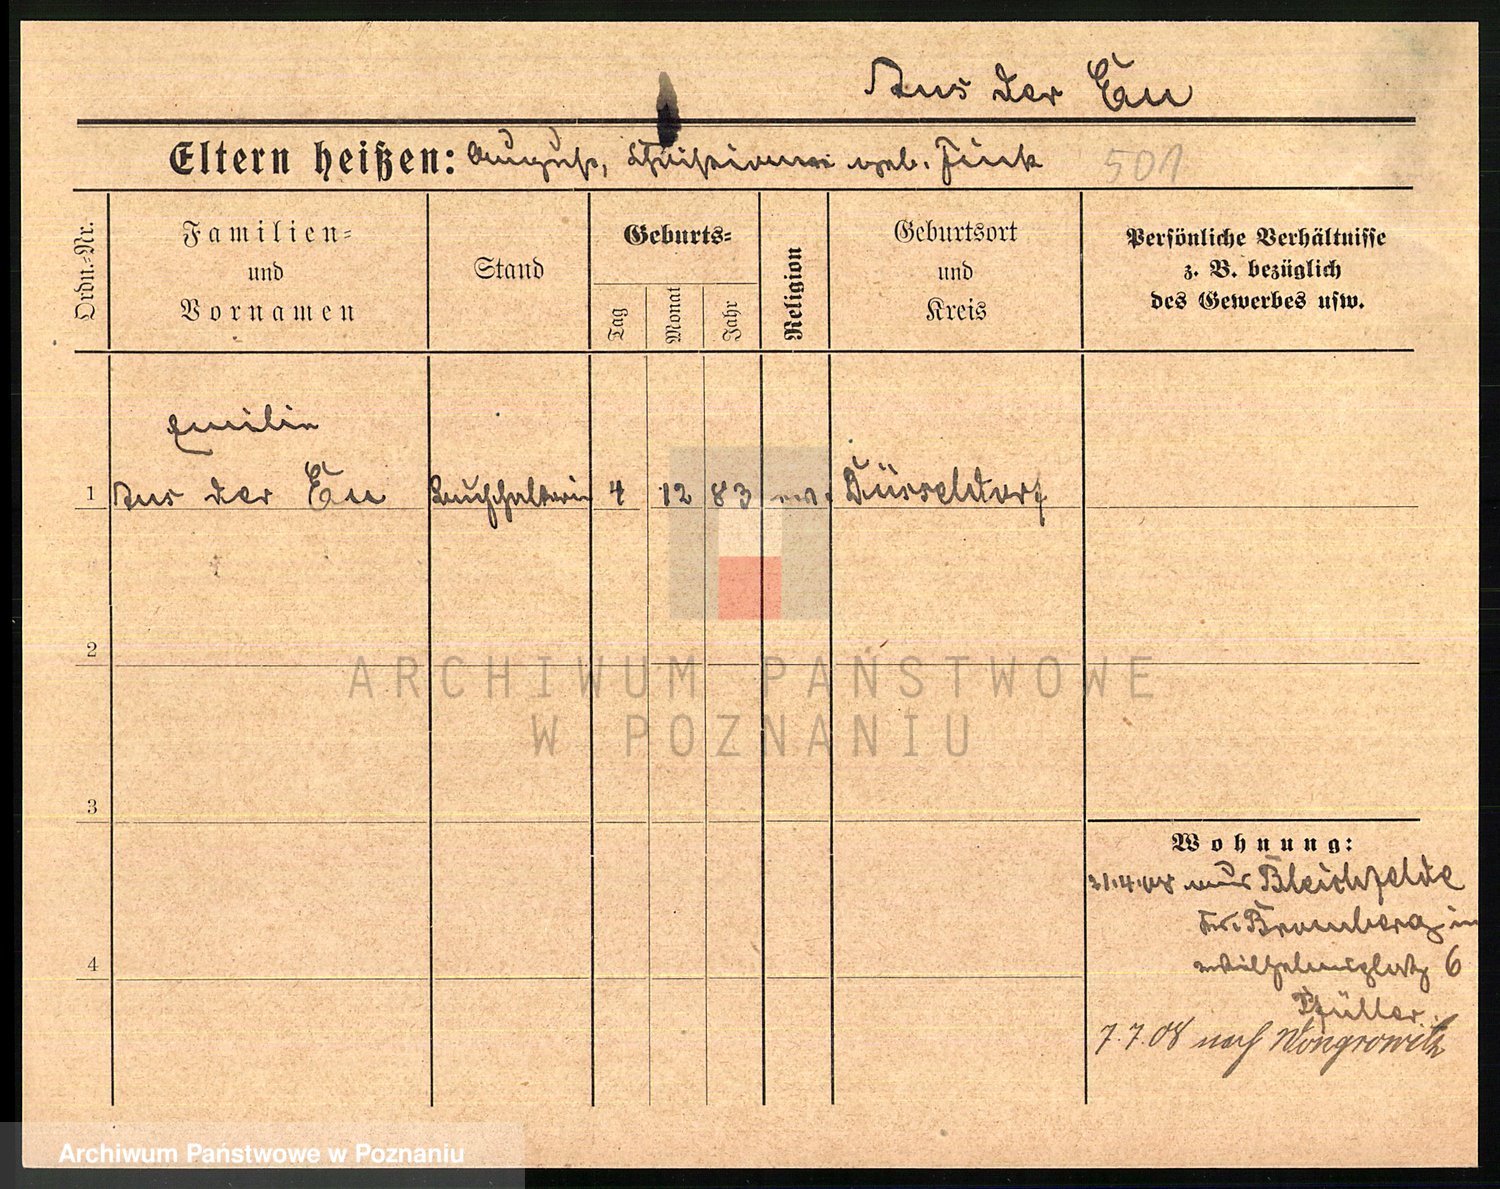 Aus der Eu
Eltern heißen: August, Christiane geb. Fink 501
Ordn.-Nr.
Familien-
und
Vornamen
Stand
Geburts-
Tag
Monat
Jahr
Religion
Geburtsort
und
Kreis
Persönliche Verhältnisse
z. B. bezüglich
des Gewerbes usw.
Emilie
1 Aus der Eu Buchhalterin 4 12 83 Düsseldorf
2
ARCHIWUM PAŃSTWOWE
W POZNANIU
3
Wohnung:
21.4.08 aus Bleichfelde
Kr. Bromberg in
Wilhelmsplatz 6
Pfüller.
4
7.7.08 nach Wongrowitz
Archiwum Państwowe w Poznaniu